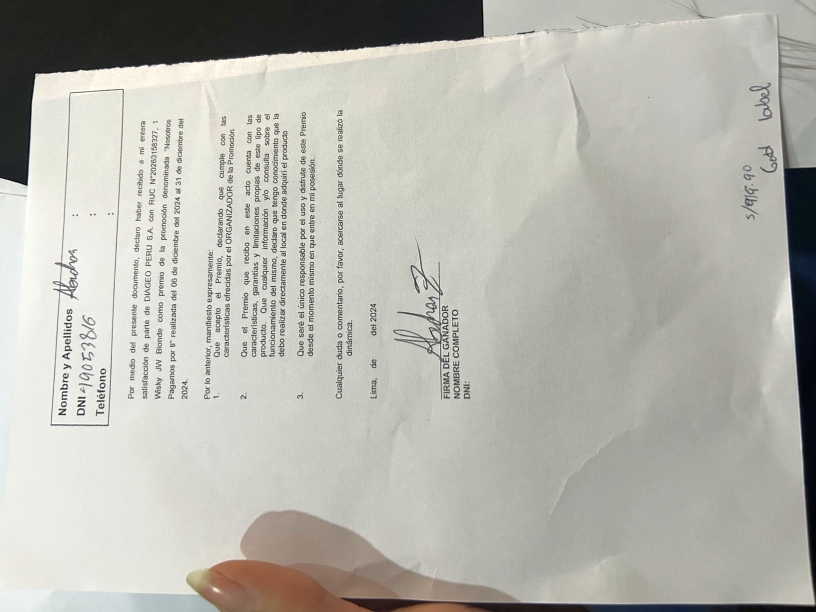 Nombre y Apellidos
DNI : 49053816 :
Teléfono :
Por medio del presente documento, declaro haber recibido a mi entera
satisfacción de parte de DIAGEO PERU S.A. con RUC N°20263158327, 1
Wisky JW Blonde como premio de la promoción denominada "Nosotros
Pagamos por ti" realizada del 06 de diciembre del 2024 al 31 de diciembre del
2024.
Por lo anterior, manifiesto expresamente:
1. Que acepto el Premio, declarando que cumple con las
características ofrecidas por el ORGANIZADOR de la Promoción
2. Que el Premio que recibo en este acto cuenta con las
características, garantías y limitaciones propias de este tipo de
producto. Que cualquier información y/o consulta sobre el
funcionamiento del mismo, declaro que tengo conocimiento que la
debo realizar directamente al local en donde adquirí el producto
3. Que seré el único responsable por el uso y disfrute de este Premio
desde el momento mismo en que entre en mi posesión.
Cualquier duda o comentario, por favor, acercarse al lugar dónde se realizo la
dinámica.
Lima, de del 2024
FIRMA DEL GANADOR
NOMBRE COMPLETO
DNI:
Gold Label